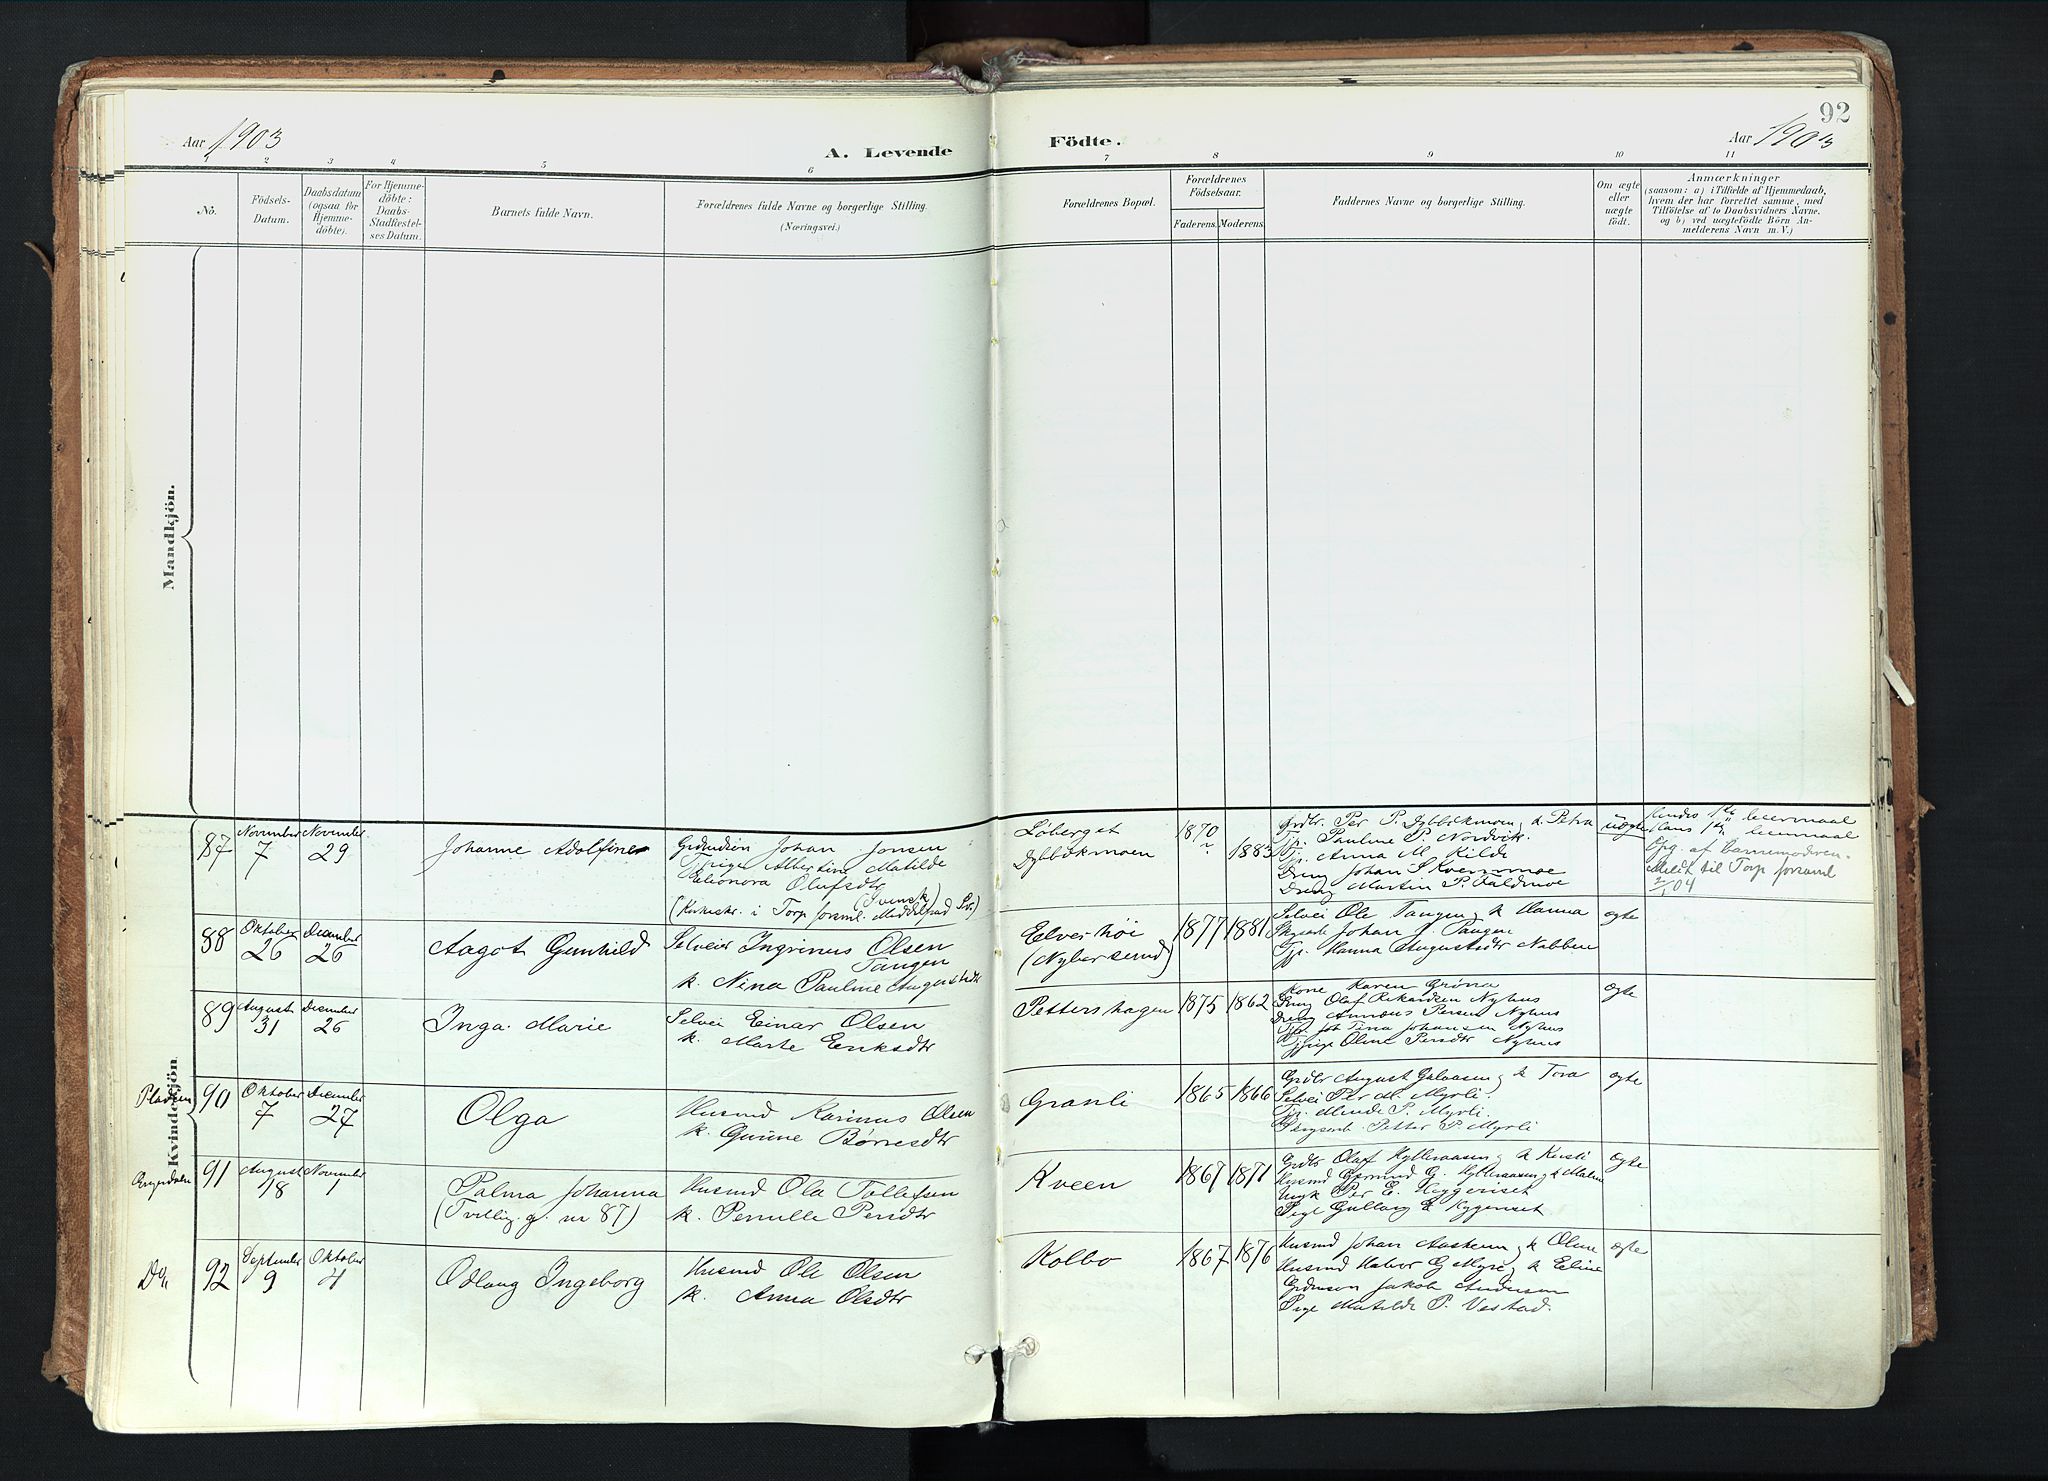 92
Aar 1903
A. Levende
Födte.
Aar 1903
1 2 3 4 5 6 7 8 9 10 11
No.
Födsels-
Datum.
Daabsdatum
(ogsaa for
Hjemme-
döbte).
For Hjemme-
döbte:
Daabs-
Stadfæstel-
ses Datum.
Barnets fulde Navn.
Forældrenes fulde Navne og borgerlige Stilling
(Næringsvei.)
Forældrenes Bopæl.
Forældrenes
Födselsaar.
Faderens.
Moderens
Faddernes Navne og borgerlige Stilling.
Om ægte
eller
uægte
födt.
Anmærkninger
(saasom: a) i Tilfælde af Hjemmedaab,
hvem der har forrettet samme, med
Tilföielse af to Daabsvidners Navne,
og b) ved uægtefödte Börn An-
melderens Navn m. V.)
Mandkjön.
Kvindekjön
87
November
7
November
29
Johanne Adolfine
Grdmdsön Johan Jonsen
Tjpige Albertine Matilde
Eleonora Olufsdtr
(Svensk)
(Kirkeskr. i Torp forsml. Medelpad Sv.)
Löberget
Dybbækmoen
1870
1883
Grdbr. Per P. Dybbækmoen, k. Petra
Tj. Pauline P. Nordvik.
Tj. Anna M. Kilde
Dreng Johan S Kvernmoe
Dreng Martin P. Faldmoe
uægte
Hendes 1ste leiermaal
Hans 1ste leiermaal
Opg. af barnemodren.
Meldt til Torp forsaml
2/1 04
88
Oktober
26
December
26
Aagot Gunhild
Selveier Ingvinus Olsen
Tangen
k. Nina Pauline Augustsdtr
Elveshöi
(Nybersund)
1877
1881
Selvei Ole Tangen, k Hanna
Skysarb Johan J. Tangen
Tjp. Hanna Augustsdtr Nabben
ægte
89
August
31
December
26
Inga Marie
Selvei Einar Olsen
k. Marte Eriksdtr
Pettershagen
1875
1862
Kone Karen Gröna
Dreng Olaf Rikardsen Nyhus
Dreng Annæus Persen Nyhus
Tina Johansen Nyhus
Tjpige Oline Persdtr Nyhus
ægte
Pladsen
90
Oktober
7
December
27
Olga
Husmd Karinus Olsen
k. Gunne Börresdtr
Granli
1865
1866
Grdbr August Galaasen, k Tora
Selvei Per M. Myrli.
Tjp. Minda P. Myrli.
Skogsarb. Petter P. Myrli
ægte
Engerdalen
91
August
18
November
1
Palma Johanna
(Tvilling. g. nr 87)
Husmd Ola Tollefsen
k. Pernille Persdtr
Kveen
1867
1871
Grdbr Olaf Hylleraasen, k Kirsti
Husmd G. Hylleraasen, k Malene
Ungk Per E. Hyggenset
Pige Gullaug E Hyggenset
ægte
Do.
92
September
9
Oktober
4
Odlaug Ingeborg
Husmd Ole Olsen
k. Anna Olsdtr
Kolbo
1867
1876
Husmd Johan Aasheim, k Oline
Husmd Halvor G Myre, k Eline
Grdmsön Jakob Andersen
Pige Matilde P. Vestad.
ægte